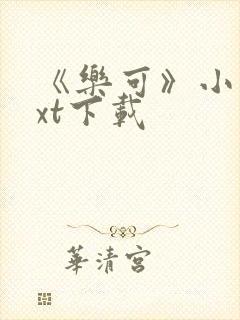 《樂可》小
xt下載
華清宮